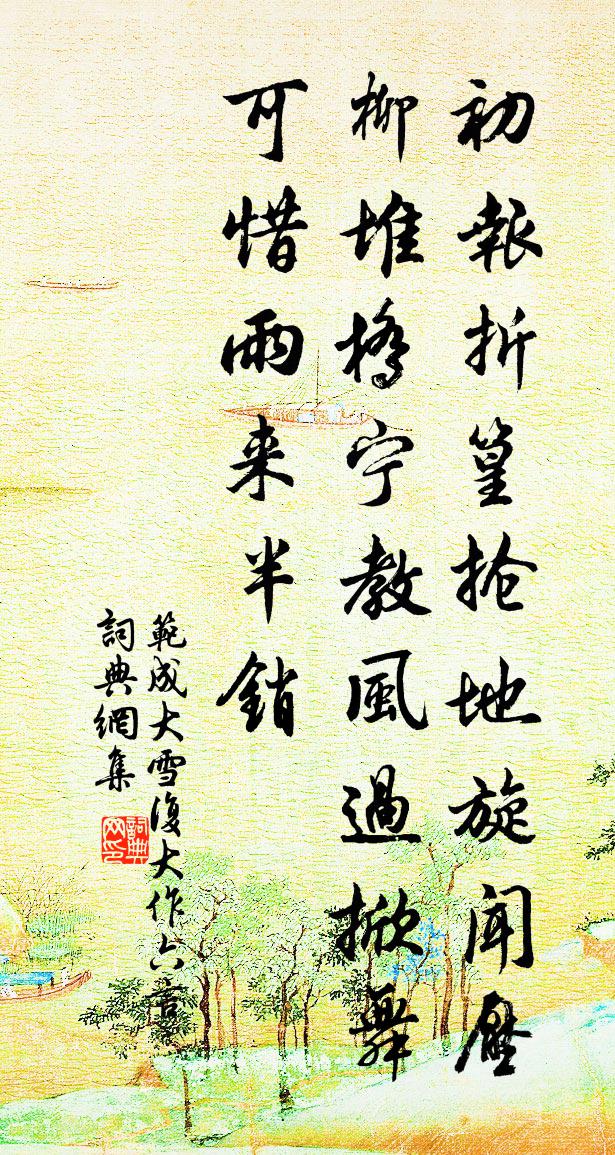 初報折篁抢地旋聞壓
柳堆橋宁教風過掀舞
可惜雨来半銷
範成大雪復大作六言
詞典網集
詞典